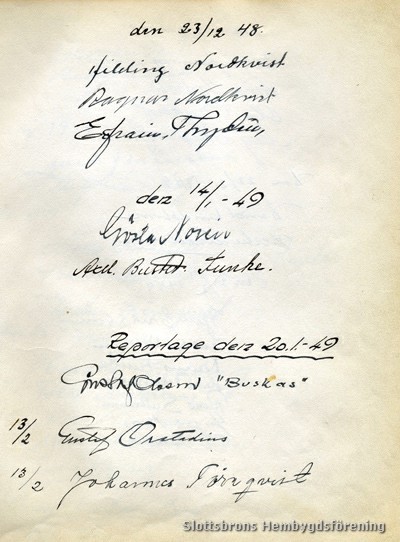 den 23/12 48.
Hilding Nordkvist
Ragnar Nordkvist
Efraim Thydén,
den 14/1.-49
Gösta Norén
Axel. Funke.
Reportage den 20.1.-49
Gustaf Olsson "Buskas"
13/2 Gustef
13/2 Johannes Törnqvist
Slottsbrons Hembygdsförening